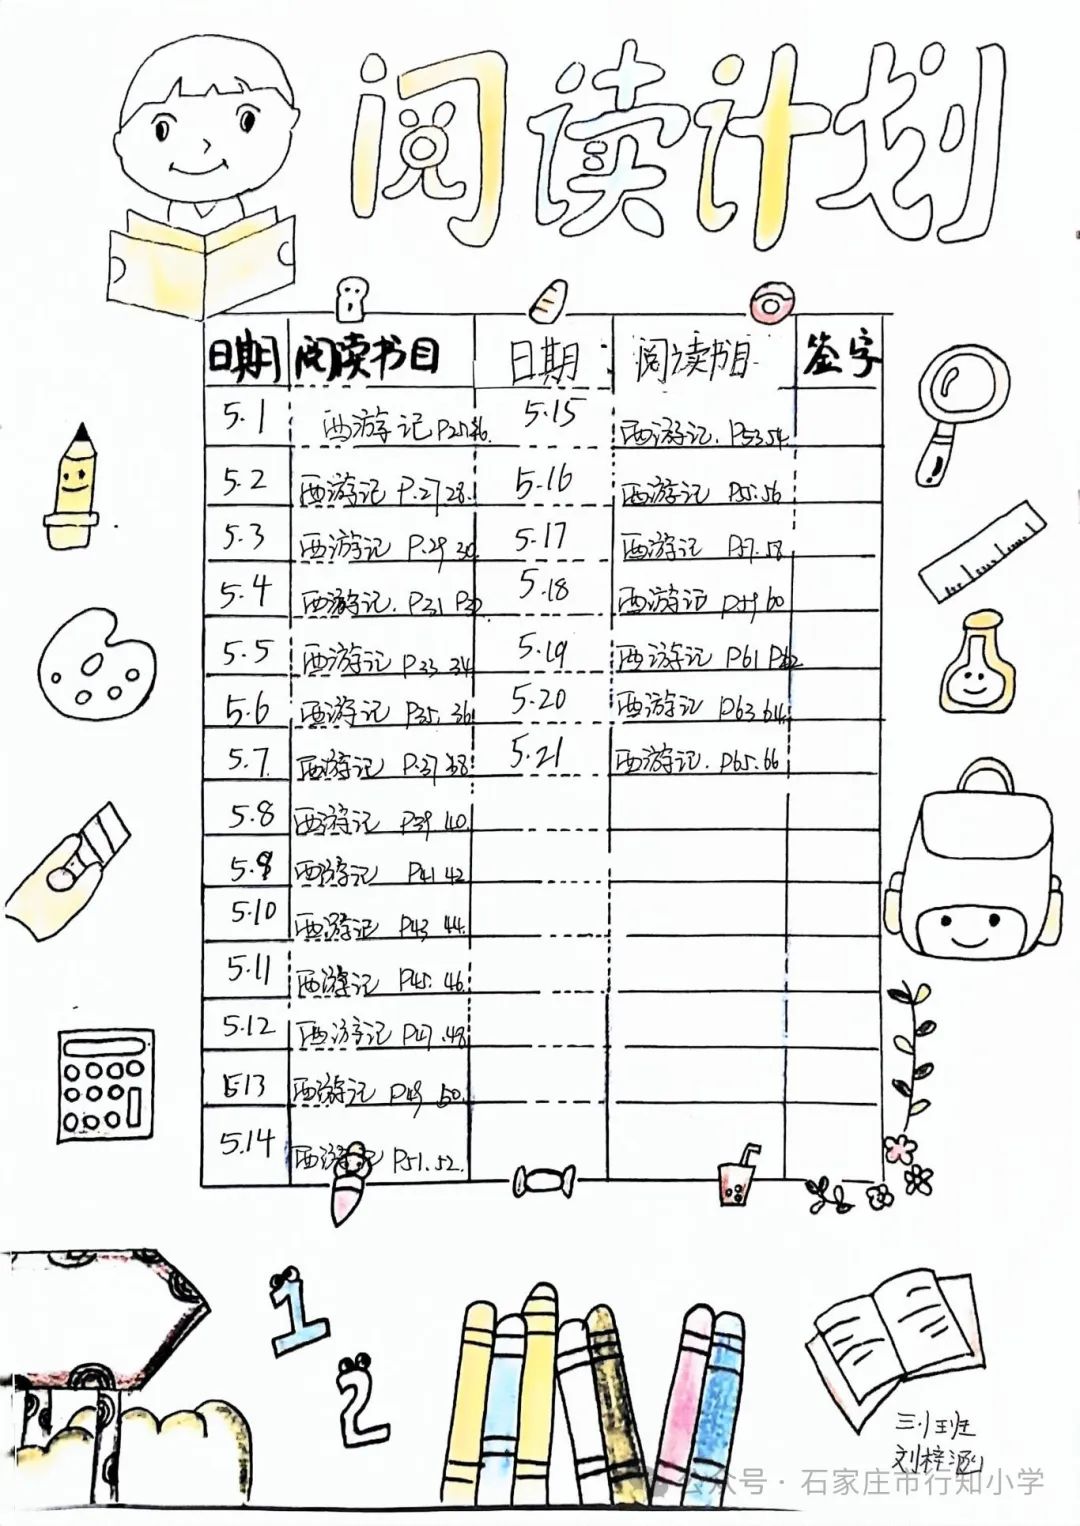 阅读计划
日期 阅读书目 日期 阅读书目 签字
5.1 西游记 P25.26. 5.15 西游记. P53 54.
5.2 西游记 P.27 28. 5.16 西游记 P55.56
5.3 西游记 P.29 30. 5.17 西游记 P57.58
5.4 西游记. P31 P32 5.18 西游记 P59 60
5.5 西游记 P.33 34 5.19 西游记 P61 P62
5.6 西游记 P35. 36 5.20 西游记 P63 64.
5.7. 西游记 P.37 38 5.21 西游记. P65.66
5.8 西游记 P39 40.
5.9 西游记 P41 42
5.10 西游记 P43 44.
5.11 西游记 P45. 46.
5.12 西游记 P47.48
5.13 西游记 P49 50.
5.14 西游记 P51.52.
1
2
班
刘梓涵
公众号 · 石家庄市行知小学